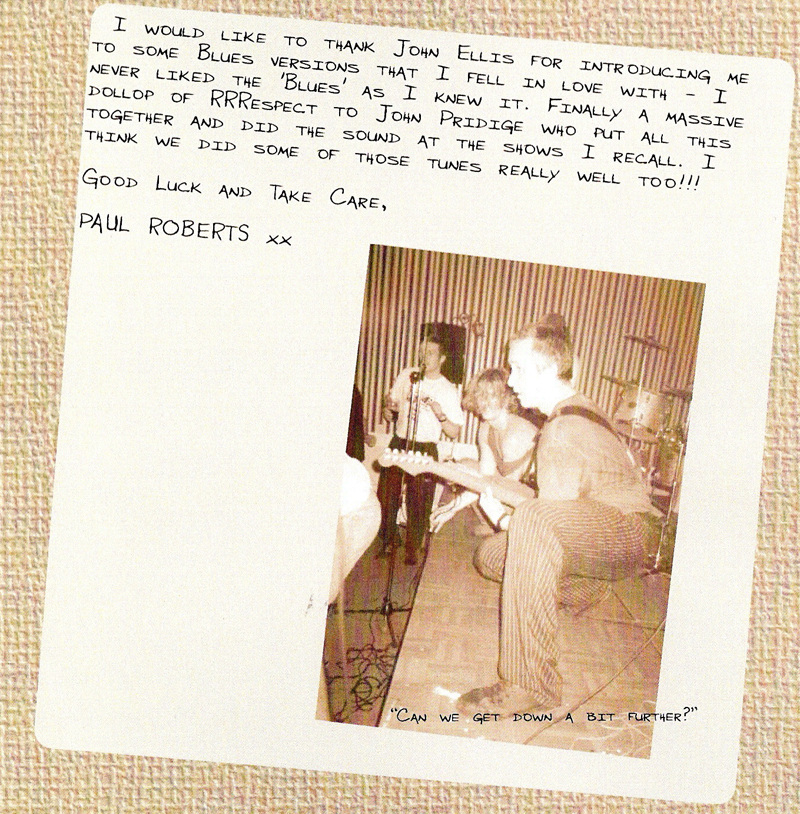 I would like to thank John Ellis for introducing me
to some Blues versions that I fell in love with - I
never liked the 'Blues' as I knew it. Finally a massive
dollop of RRRespect to John Pridige who put all this
together and did the sound at the shows I recall. I
think we did some of those tunes really well too!!!
Good Luck and Take Care,
PAUL ROBERTS xx
"Can we get down a bit further?"